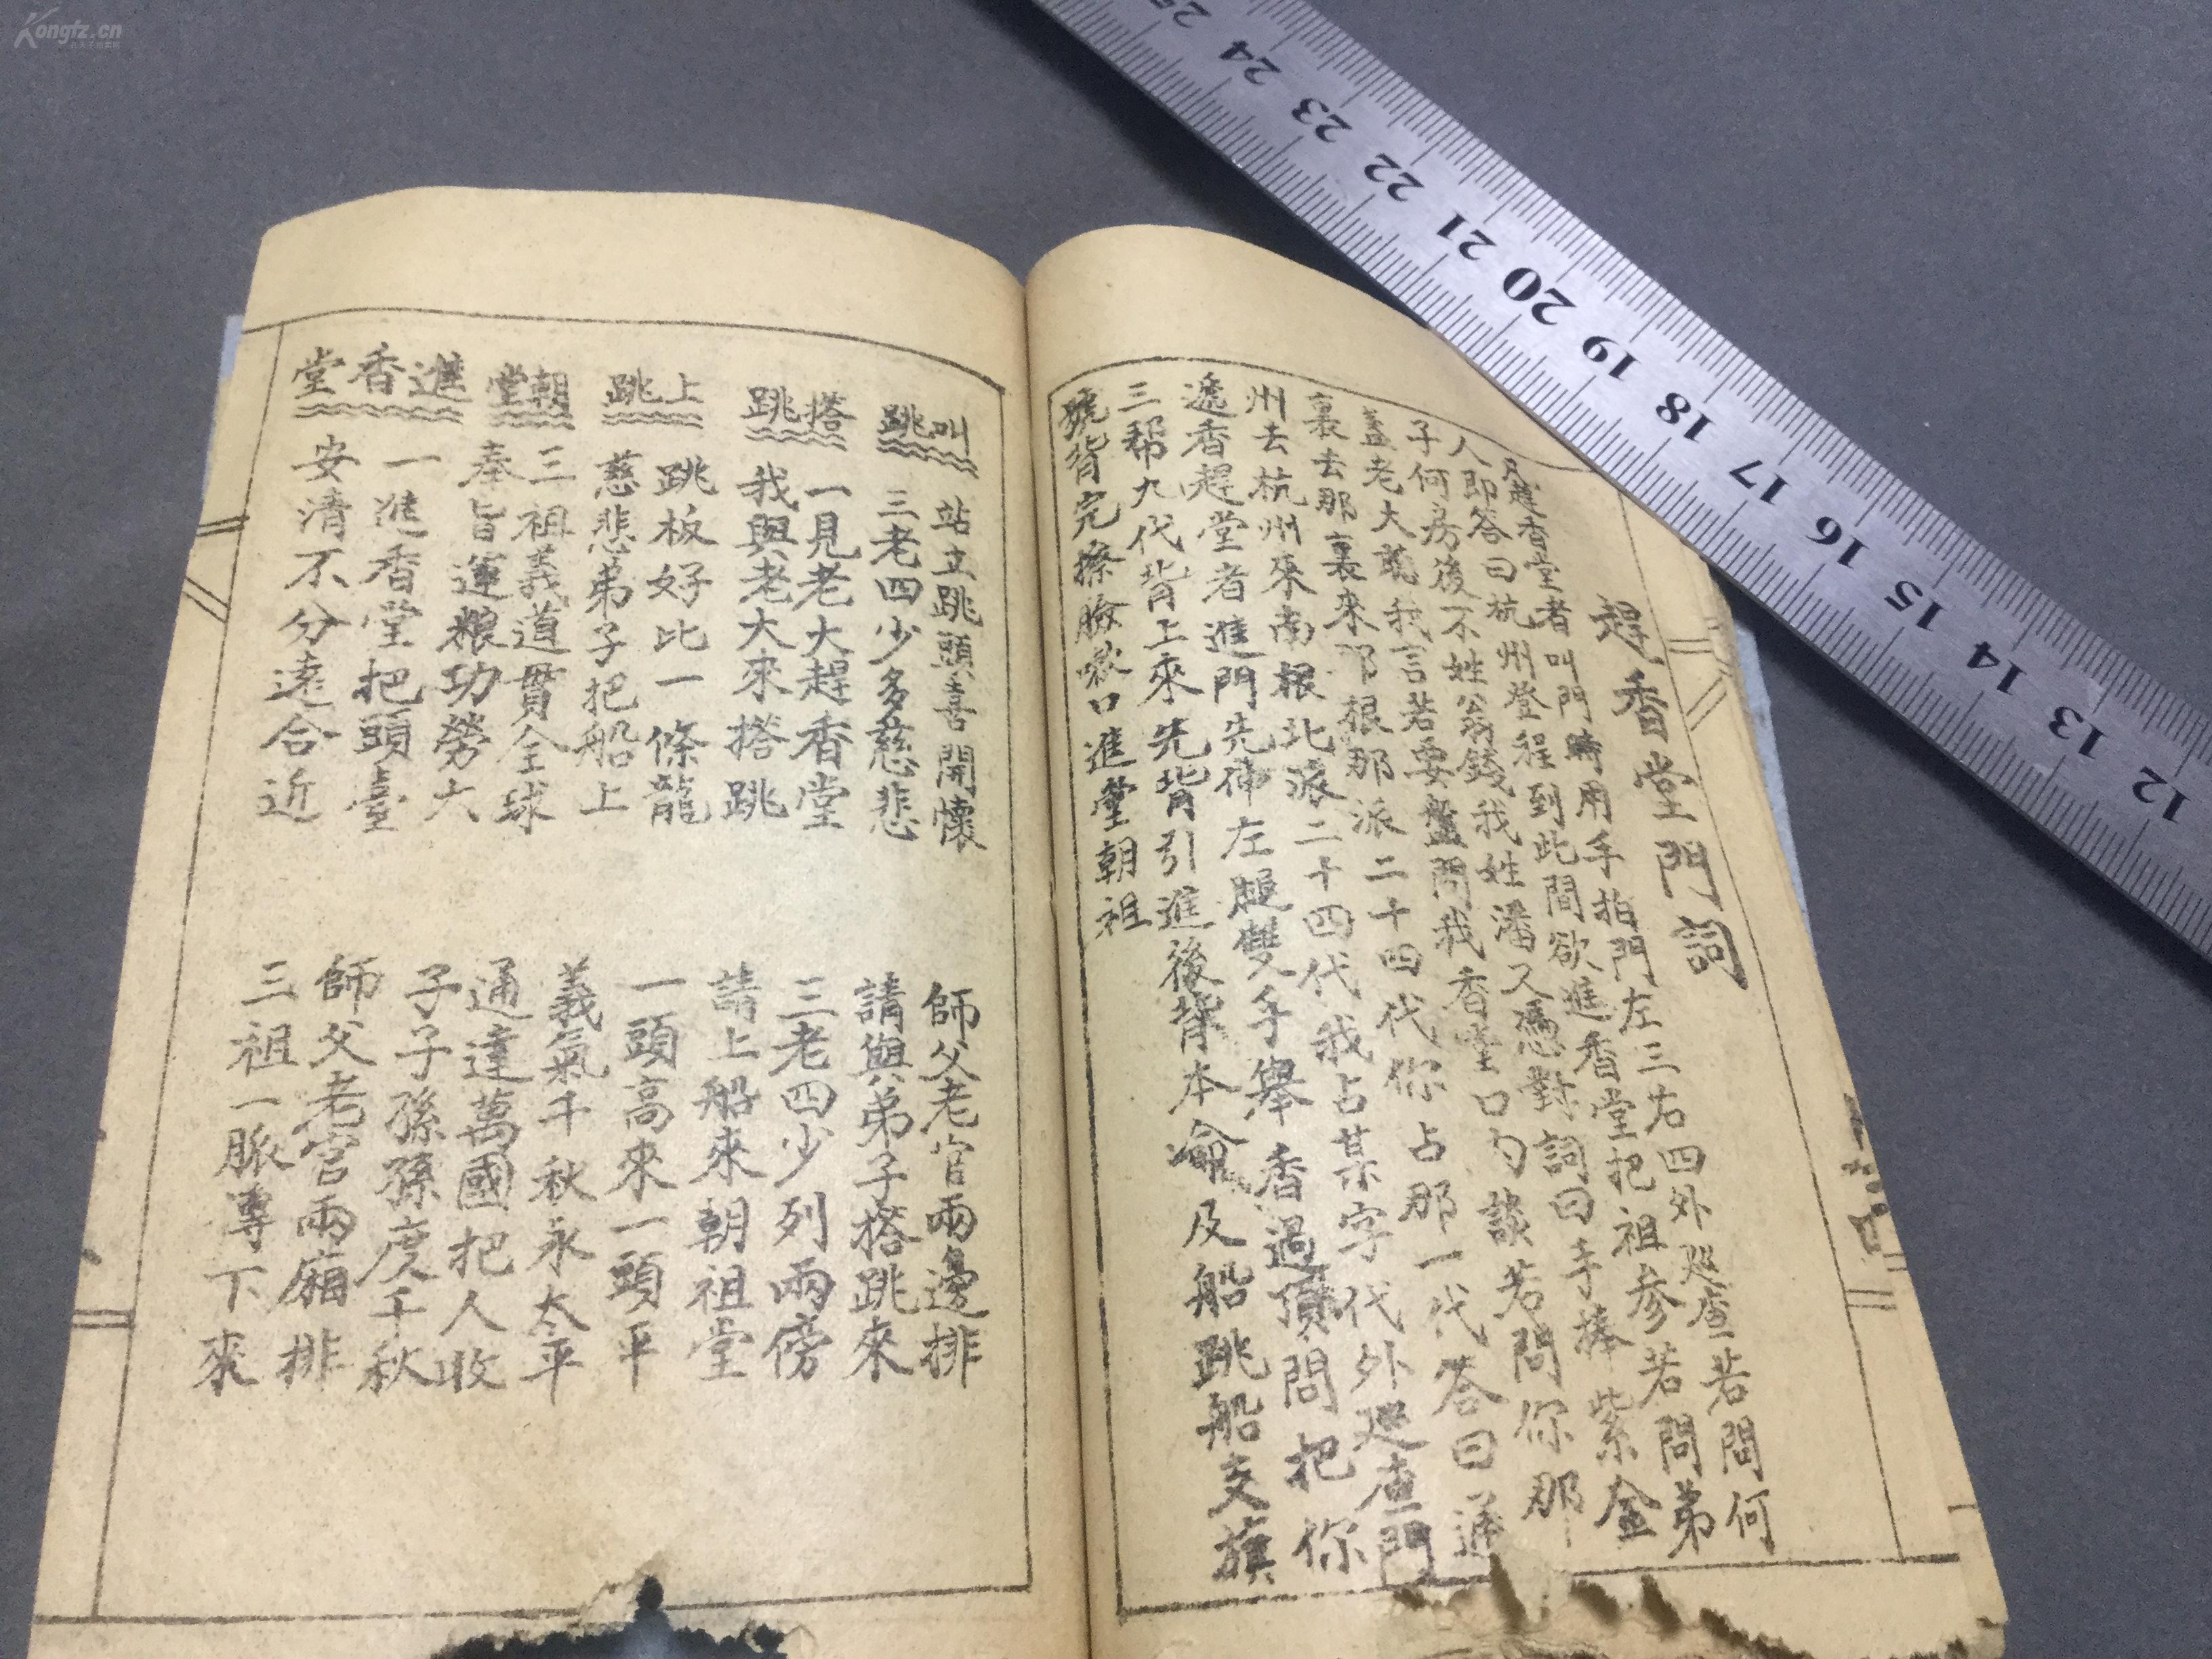 趕香堂門詞
凡趕香堂者叫門時用手拍門左三右四外巡查若問何
人即答曰杭州登程到此間欲進香堂把祖參若問弟
子何房後不姓翁錢我姓潘又憑對詞曰手捧紫金
蓋老大聽我言若要盤問我香堂口內談若問你那
裏去那裏來那根那派二十四代你占那一代答曰通
州去杭州來南根北派二十四代我占某字代外巡查門
遞香趕堂者進門先伸左腿雙手舉香過頂問把你
三幫九代背上來先背引進後背本命及船跳船交旗
號背完擦臉漱口進堂朝祖
叫跳
站立跳頭喜開懷
師父老官兩邊排
三老四少多慈悲
請與弟子搭跳來
搭跳
一見老大趕香堂
三老四少列兩傍
我與老大來搭跳
請上船來朝祖堂
上跳
跳板好比一條龍
一頭高來一頭平
慈悲弟子把船上
義氣千秋永太平
朝堂
三祖義道貫全球
通達萬國把人收
奉旨運糧功勞大
子子孫孫度千秋
進香堂
一進香堂把頭臺
師父老官兩廂排
安清不分遠合近
三祖一脈專下來
Kongfz.cn
25 24 23 22 21 20 19 18 17 16 15 14 13 12